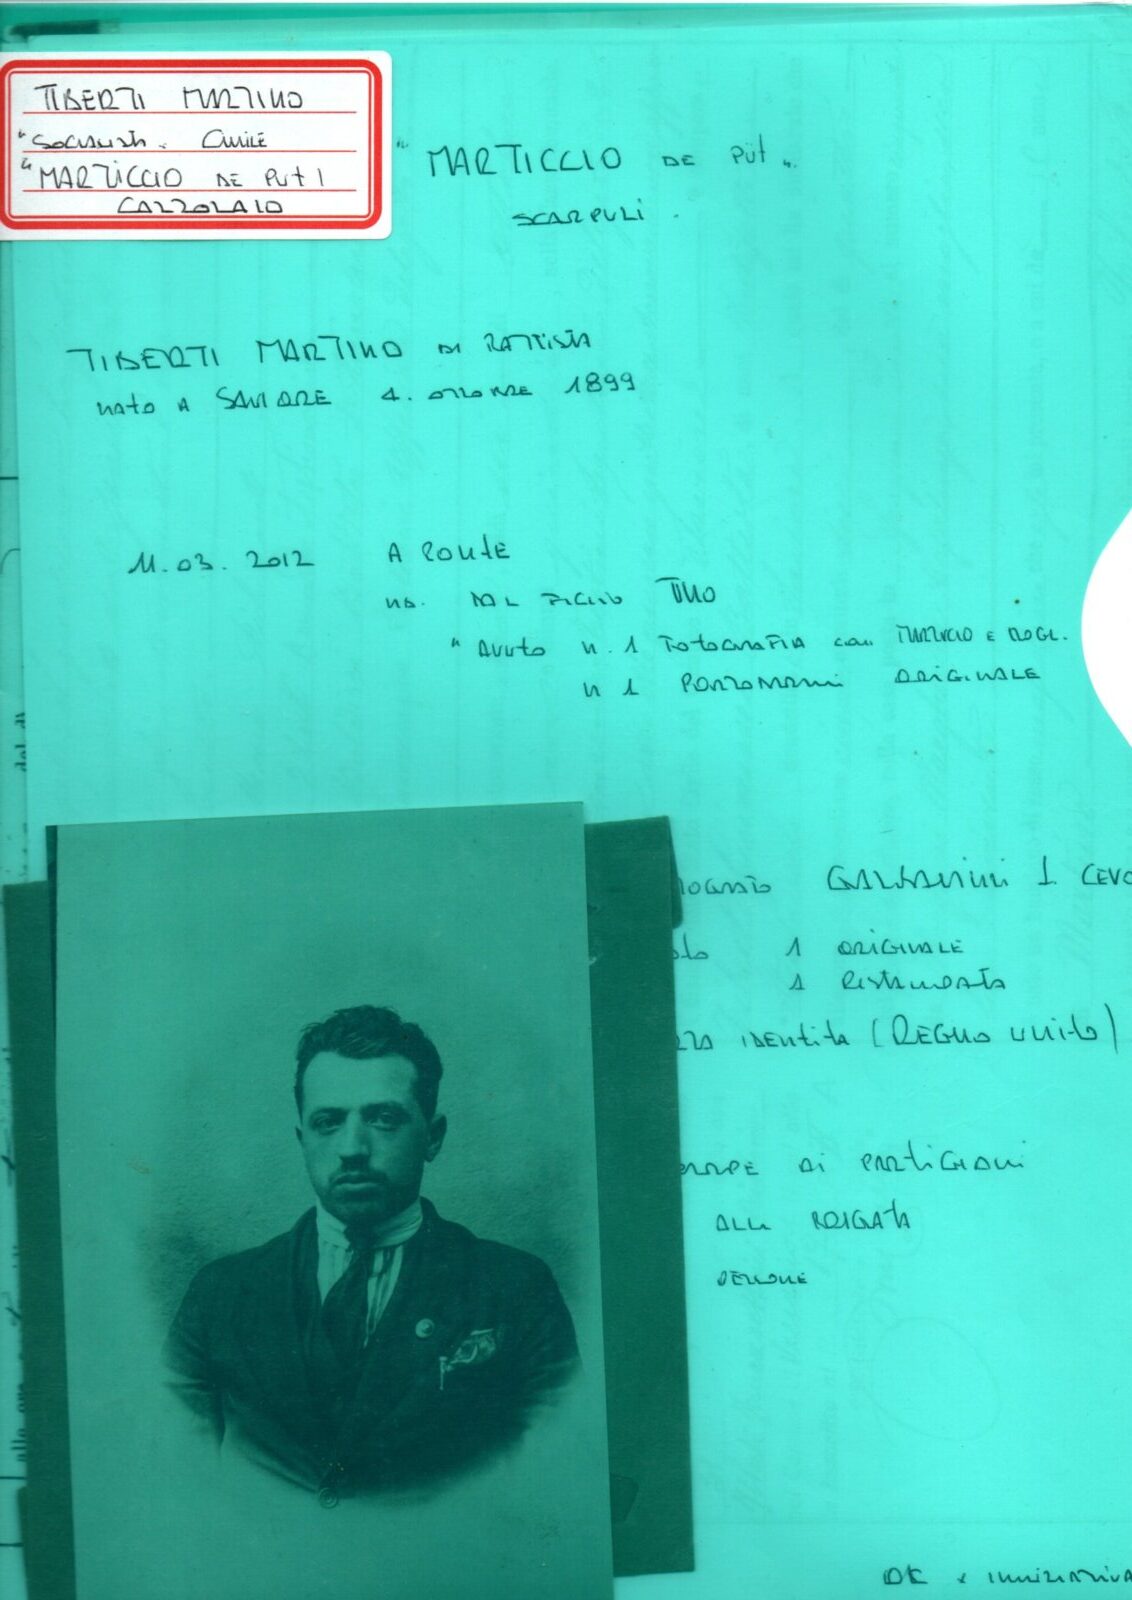 TIBERTI MARTINO
"SOCIALISTA. CIVILE
"MARTICCIO DE PUT 1
CALZOLAIO
"MARTICCIO DE PÜT".
SCARPULÌ.
TIBERTI MARTINO DI BATTISTA
NATO A SAVIORE 4. OTTOBRE 1899
11.03.2012 A PONTE
DAL FIGLIO TINO
"AVUTO N. 1 FOTOGRAFIA CON MARTICCIO E MOGL.
N 1 PORTOMARNI ORIGINALE
1 CEVO
1 ORIGINALE
1 RISTAMPATA
IDENTITA (REGNO UNITO)
DI PARTIGIANI
ALLA BRIGATA
OK